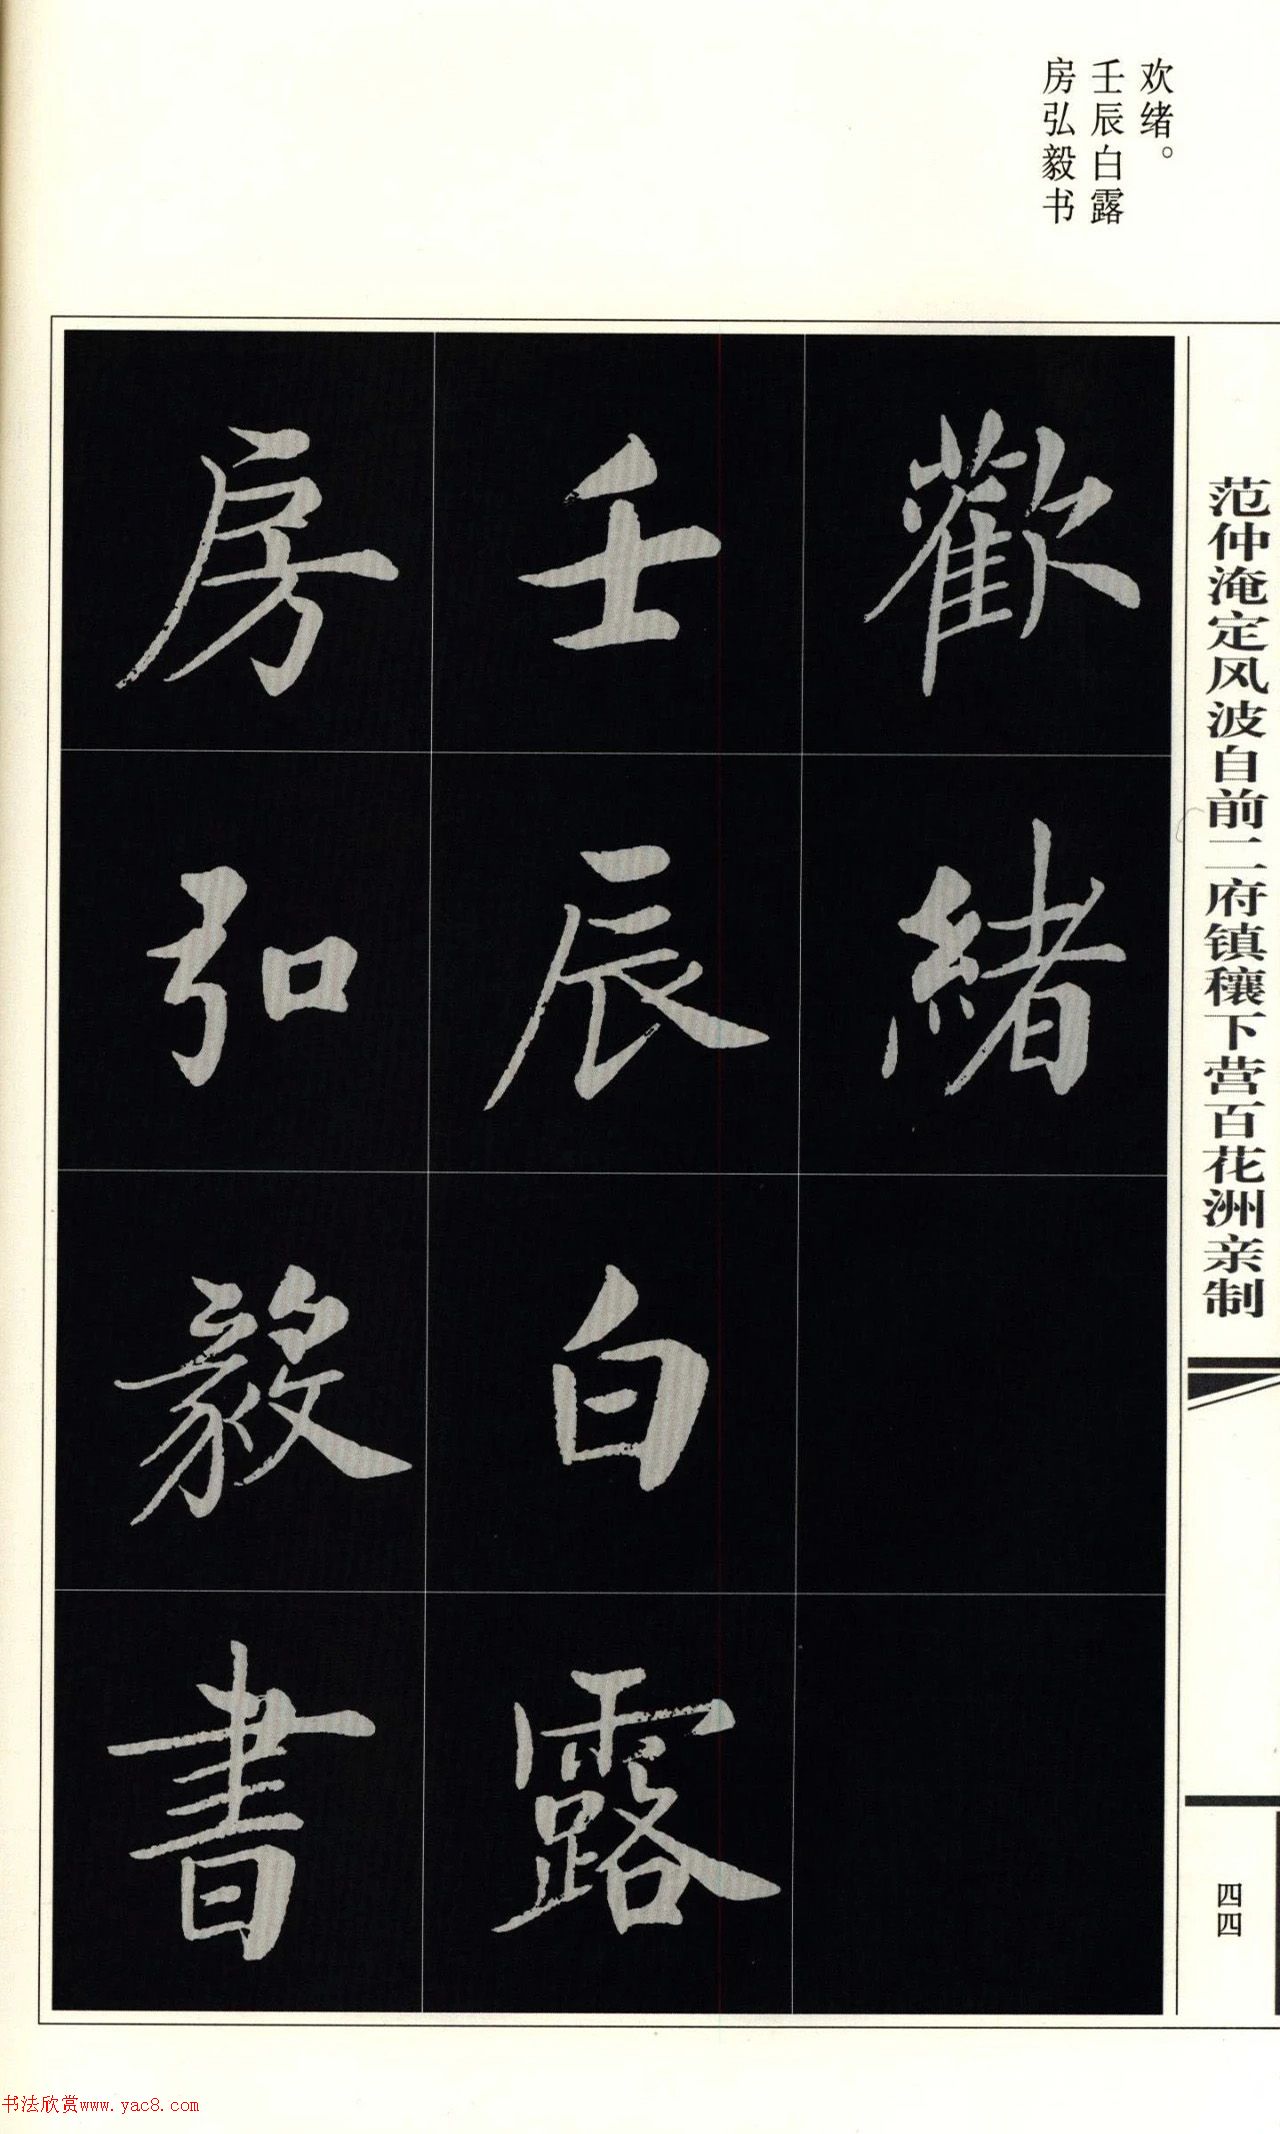 欢绪。
壬辰白露
房弘毅书
范仲淹定风波自前二府镇穰下营百花洲亲制
歡緒
壬辰白露
房弘毅書
四四
书法欣赏www.yac8.com